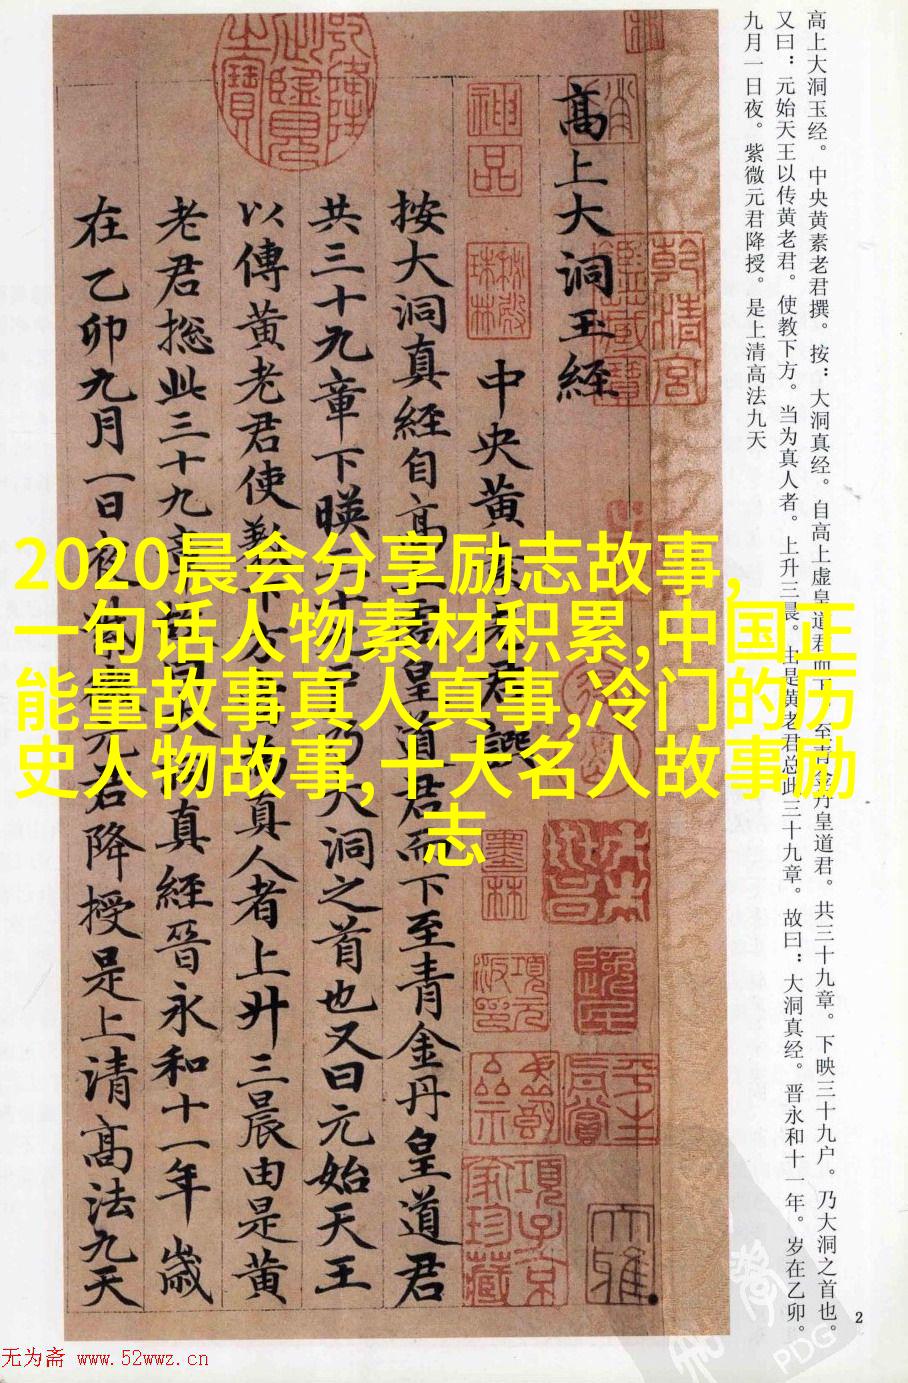 高上大洞玉经。中央黄素老君撰。按：大洞真经。自高上虚皇道君而下。至青金丹皇道君。共三十九章。下映三十九户。乃大洞之首也。
又曰：元始天王以传黄老君。使教下方。当为真人者。上升三晨。由是黄老君总此三十九章。故曰：大洞真经。晋永和十一年。岁在乙卯。
九月一日夜。紫微元君降授。是上清高法九天
高上大洞玉經
中央黄素老君撰
按大洞真經自高上虚皇道君而下至青金丹皇道君
共三十九章下暎三十九户乃大洞之首也又曰元始天王
以傳黄老君使教下方當爲真人者上升三晨由是黄
老君捴此三十九章故曰大洞真經晉永和十一年歲
在乙卯九月一日夜紫微元君降授是上清高法九天
神品
乾清宮鑑藏寶
墨林
項子京家珍藏
2020晨会分享励志故事,
一句话人物素材积累,中国正
能量故事真人真事,冷门的历
史人物故事,十大名人故事励
志
2
PDG
无为斋 www.52wwz.cn